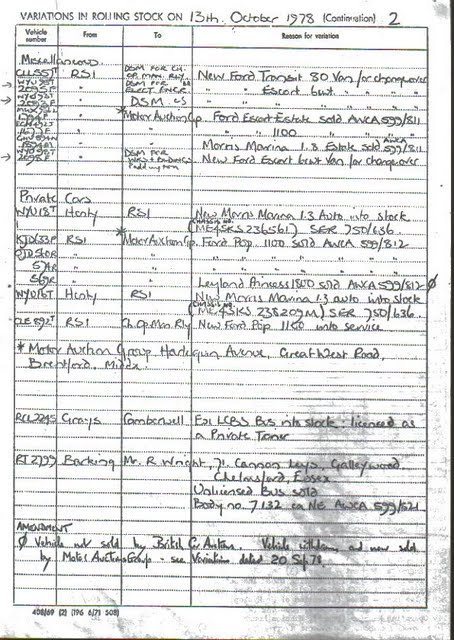 VARIATIONS IN ROLLING STOCK ON 13th. October 1978 (Continuation) 2
Vehicle number From To Reason for variation
Miscellaneous
RSI New Ford Transit 80 Van for changeover
" Escort 6wt. " "
" DSM. CS " "
*Motor Auction Gp. Ford Escort Estate sold AWCA 599/811
" 1100 "
Morris Marina 1.8 Estate sold AWCA 599/811
DSM FOR
New Ford Escort 6wt Van for changeover
Private Cars
WYU 18T Henly RSI New Morris Marina 1.3 Auto into stock
(CHASSIS NO. ME4SKS 236561) SER 750/636.
RSI *Motor Auction Gp. Ford Pop. 1100 sold AWCA 599/812
" " " " "
" " " " "
" " Leyland Princess 1800 sold AWCA 599/812 Ø
WYU 16T Henly RSI New Morris Marina 1.3 auto into stock
(CHASSIS NO. ME4SKS 238209M) SER 750/636.
RSI Ch. Op. Man. Rly New Ford Pop 1100 into service
* Motor Auction Group, Harlequin Avenue, Great West Road,
Brentford, Middx.
RCL 2245 Grays Camberwell Ex LCBS Bus into stock: licensed as
a Private Trainer
RT 2799 Barking Mr. R. Wright, 71, Cannon Leys, Galleywood
Chelmsford, Essex
Unlicensed Bus sold
Body no. 7132 AWCA 599/821
AMENDMENT
Ø Vehicle not sold by British Car Auctions. Vehicle withdrawn and now sold
by Motor Auctions Group - see Variations dated 20 Sept 78.
408/69 (2) (196 6/71 508)